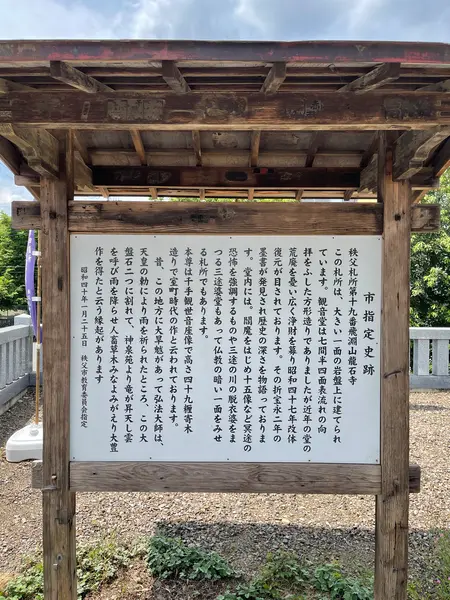 市指定史跡
秩父札所第十九番飛淵山龍石寺
この札所は、大きい一面の岩盤上に建てられ
ています。観音堂は七間半四面表流れの向
拝をふした方形造りでありましたが近年の堂の
荒廃を憂い広く浄財を募り昭和四十七年改体
復元が目されております。その折宝永二年の
墨書が発見され歴史の深さを物語っておりま
す。堂内には、閻魔をはじめ十五像など冥途の
恐怖を強調するものや三途の川の脱衣婆をま
つる三途婆堂もあって仏教の暗い一面をみせ
る札所でもあります。
本尊は千手観世音座像で高さ四十九糎寄木
造りで室町時代の作と云われております。
昔、この地方に大旱魃があって弘法大師は、
天皇の勅により雨を祈られたところ、この大
盤石二つに割れて、神泉苑より竜が昇天し雲
を呼び雨を降らせ人畜草木みなよみがえり大豊
作を得たと云う縁起があります
昭和四十年一月二十五日　秩父市教育委員会指定